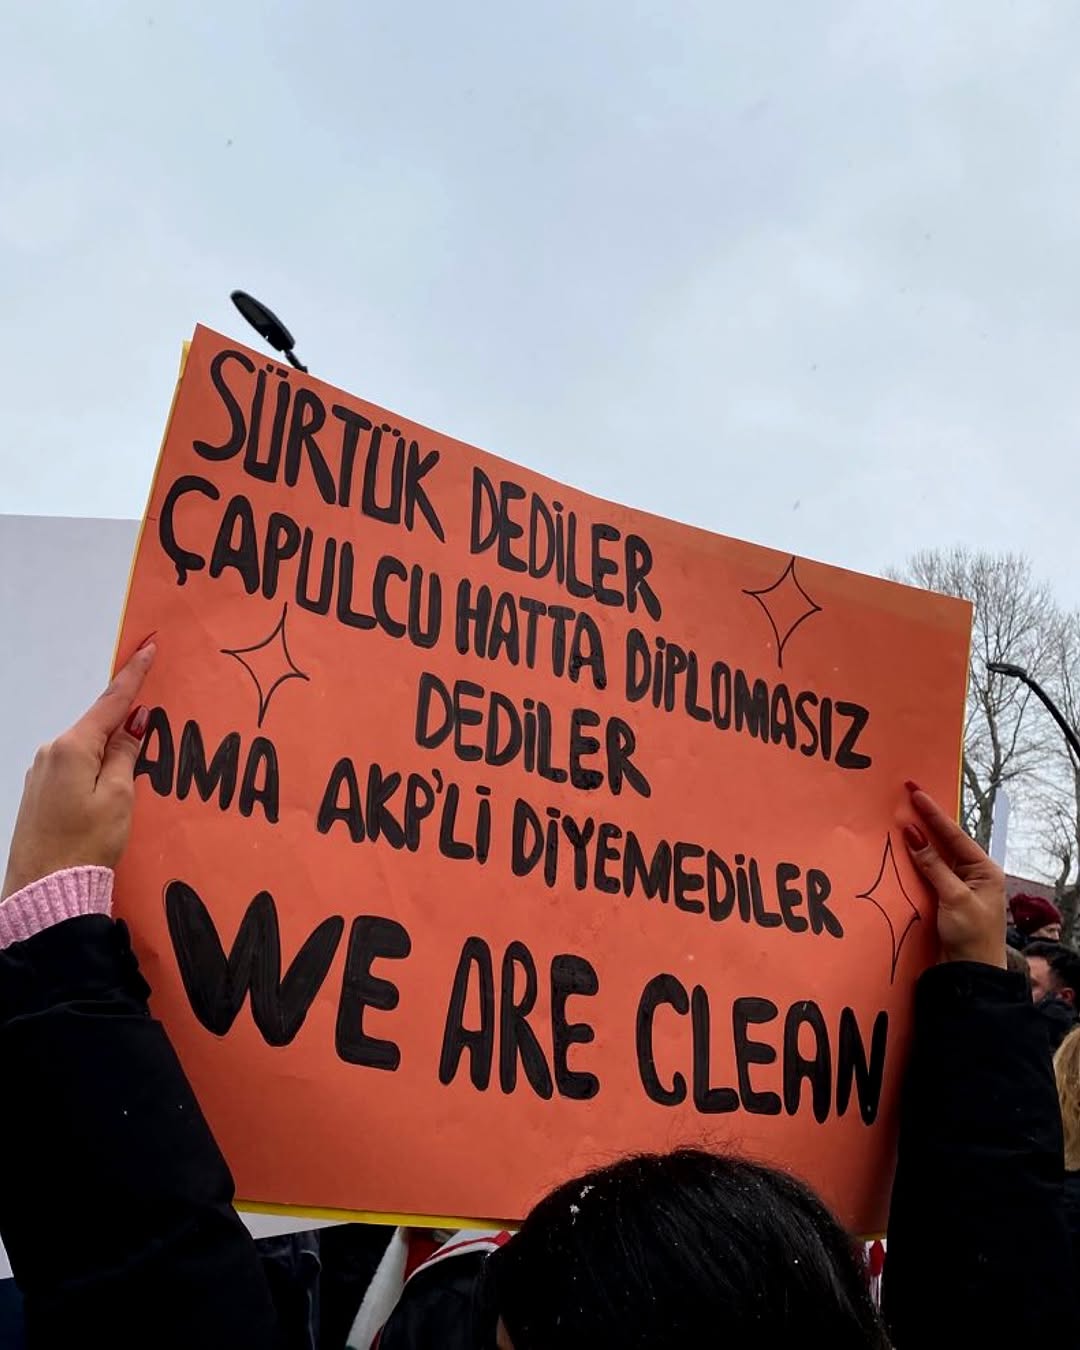 SÜRTÜK DEDİLER
ÇAPULCU HATTA DİPLOMASIZ
DEDİLER
AMA AKP'Lİ DİYEMEDİLER
WE ARE CLEAN